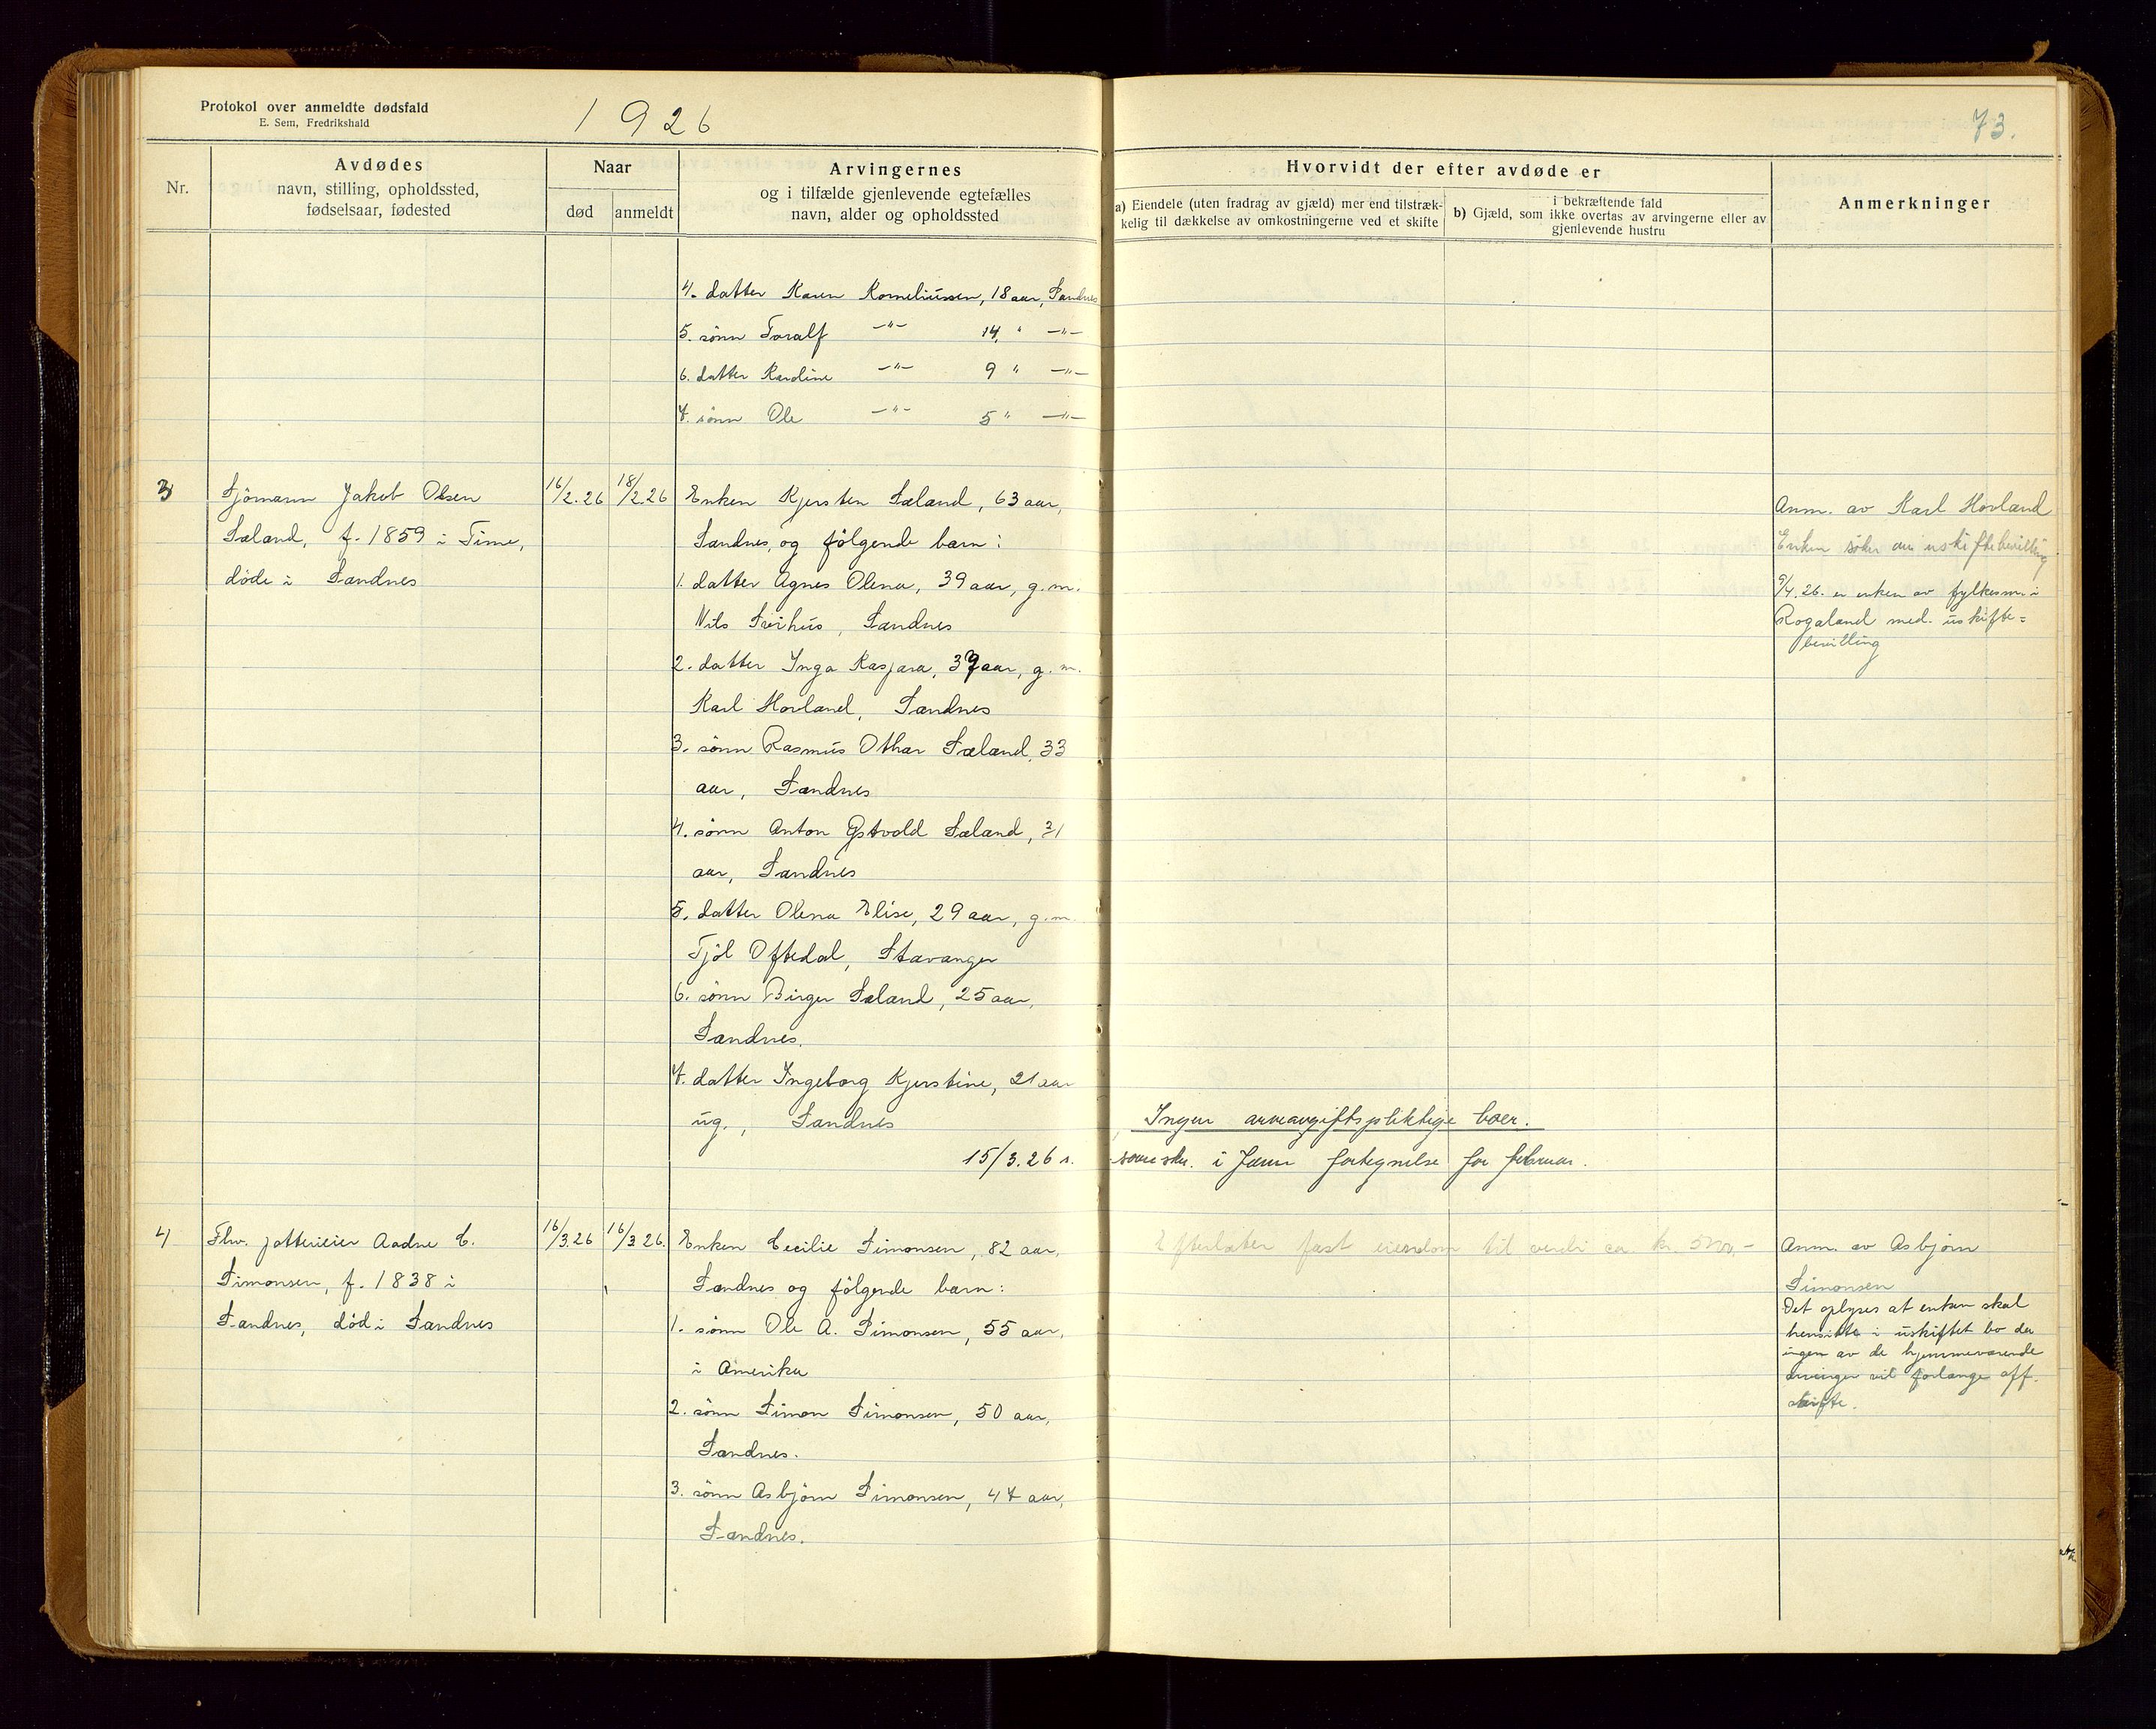 Protokol over anmeldte dødsfald
E. Sem, Fredrikshald
1926
73.
Nr.
Avdødes
navn, stilling, opholdssted,
fødselsaar, fødested
Naar
død
anmeldt
Arvingernes
og i tilfælde gjenlevende egtefælles
navn, alder og opholdssted
Hvorvidt der efter avdøde er
a) Eiendele (uten fradrag av gjæld) mer end tilstræk-
kelig til dækkelse av omkostningerne ved et skifte
i bekræftende fald
b) Gjæld, som ikke overtas av arvingerne eller av
gjenlevende hustru
Anmerkninger
4. datter Karen Korneliussen, 18 aar, Sandnes
5. sönn Toralf —"— 14, " —"—
6. datter Karoline —"— 9 " —"—
7. sönn Ole —"— 5 " —"—
3
Sjömann Jakob Olsen
Sæland, f. 1859 i Time,
döde i Sandnes
16/2. 26
18/2. 26
Enken Kjersten Sæland, 63 aar,
Sandnes, og fölgende barn:
1. datter Agnes Olena, 39 aar, g. m.
Nils Sørhus, Sandnes
2. datter Inga Kasjara, 37 aar, g. m.
Karl Hovland, Sandnes
3. sönn Rasmus Othar Sæland, 33
aar, Sandnes
4. sönn Anton Østvold Sæland, 31
aar, Sandnes
5. datter Olena Elise, 29 aar, g. m.
Tjöl Oftedal, Stavanger
6. sönn Birger Sæland, 25 aar,
Sandnes.
7. datter Ingeborg Kjerstine, 21 aar
ug., Sandnes
Anm. av Karl Hovland
Enken söker om uskiftebevilling
9/4. 26. er enken av fylkesm. i
Rogaland med. uskifte=
bevilling
Ingen arveavgiftspliktige boer.
15/3. 26 s. i Jann fortegnelse for februar.
4
Fhv. potterieier Aadne C.
Simonsen, f. 1838 i
Sandnes, död i Sandnes
16/3. 26
16/3 26.
Enken Cecilie Simonsen, 82 aar,
Sandnes og fölgende barn:
1. sönn Ole A. Simonsen, 55 aar,
i Amerika
2. sönn Simon Simonsen, 50 aar,
Sandnes.
3. sönn Asbjörn Simonsen, 47 aar,
Sandnes.
Efterlater fast eiendom til verdi ca kr. 5000,-
Anm. av Asbjörn
Simonsen
Det oplyses at enken skal
hensitte i uskiftet bo da
ingen av de hjemmeværende
arvinger vil forlange off.
skifte.